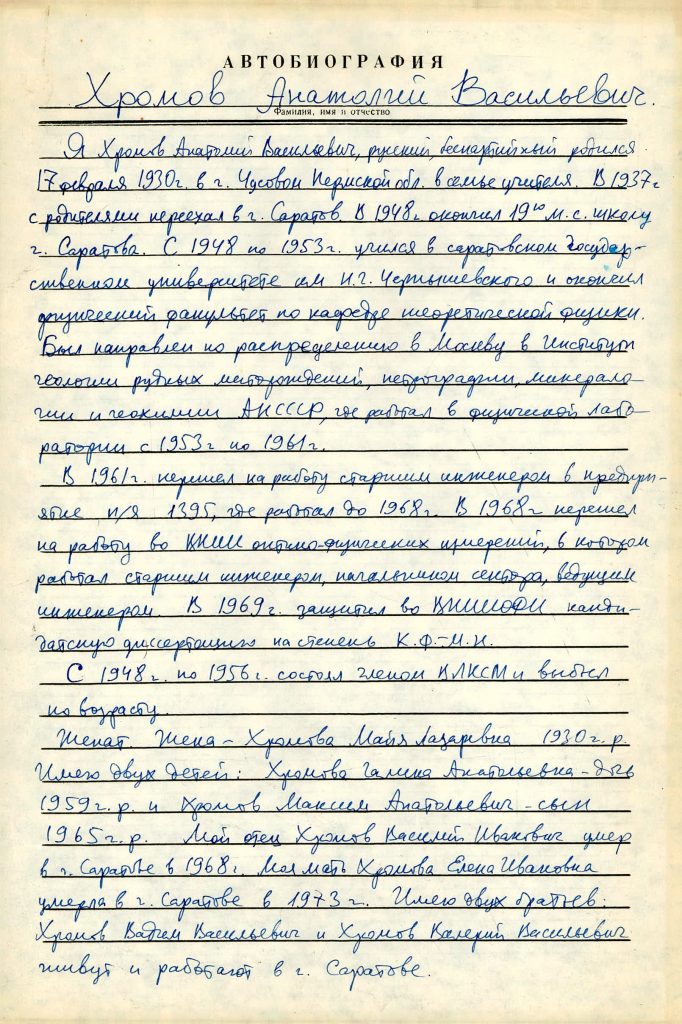 АВТОБИОГРАФИЯ
Хромов Анатолий Васильевич.
Фамилия, имя и отчество
Я Хромов Анатолий Васильевич, русский, беспартийный родился
17 февраля 1930г. в г. Чусовой Пермской обл. в семье учителя. В 1937г
с родителями переехал в г. Саратов. В 1948г. окончил 19ую М.С. школу
г. Саратова. С 1948 по 1953г. учился в саратовском государ-
ственном университете им Н.Г. Чернышевского и окончил
физический факультет по кафедре теоретической физики.
Был направлен по распределению в Москву в Институт
геологии рудных месторождений, петрографии, минерало-
гии и геохимии АНСССР, где работал в физической лабо-
ратории с 1953г по 1961г.
В 1961г. перешел на работу старшим инженером в предпри-
ятие п/я 1395, где работал до 1968г. В 1968г перешел
на работу во ВНИИ оптико-физических измерений, в котором
работал старшим инженером, начальником сектора, ведущим
инженером. В 1969г. защитил во ВНИИОФИ канди-
датскую диссертацию на степень К.Ф.-М.Н.
С 1948г. по 1956г. состоял членом ВЛКСМ и выбыл
по возрасту.
Женат. Жена - Хромова Майя Лазаревна 1930г.р.
Имею двух детей: Хромова Галина Анатольевна - дочь
1959г.р. и Хромов Максим Анатольевич - сын
1965г.р. Мой отец Хромов Василий Иванович умер
в г. Саратове в 1968г. Моя мать Хромова Елена Ивановна
умерла в г. Саратове в 1973г. Имею двух братьев:
Хромов Вадим Васильевич и Хромов Валерий Васильевич
живут и работают в г. Саратове.